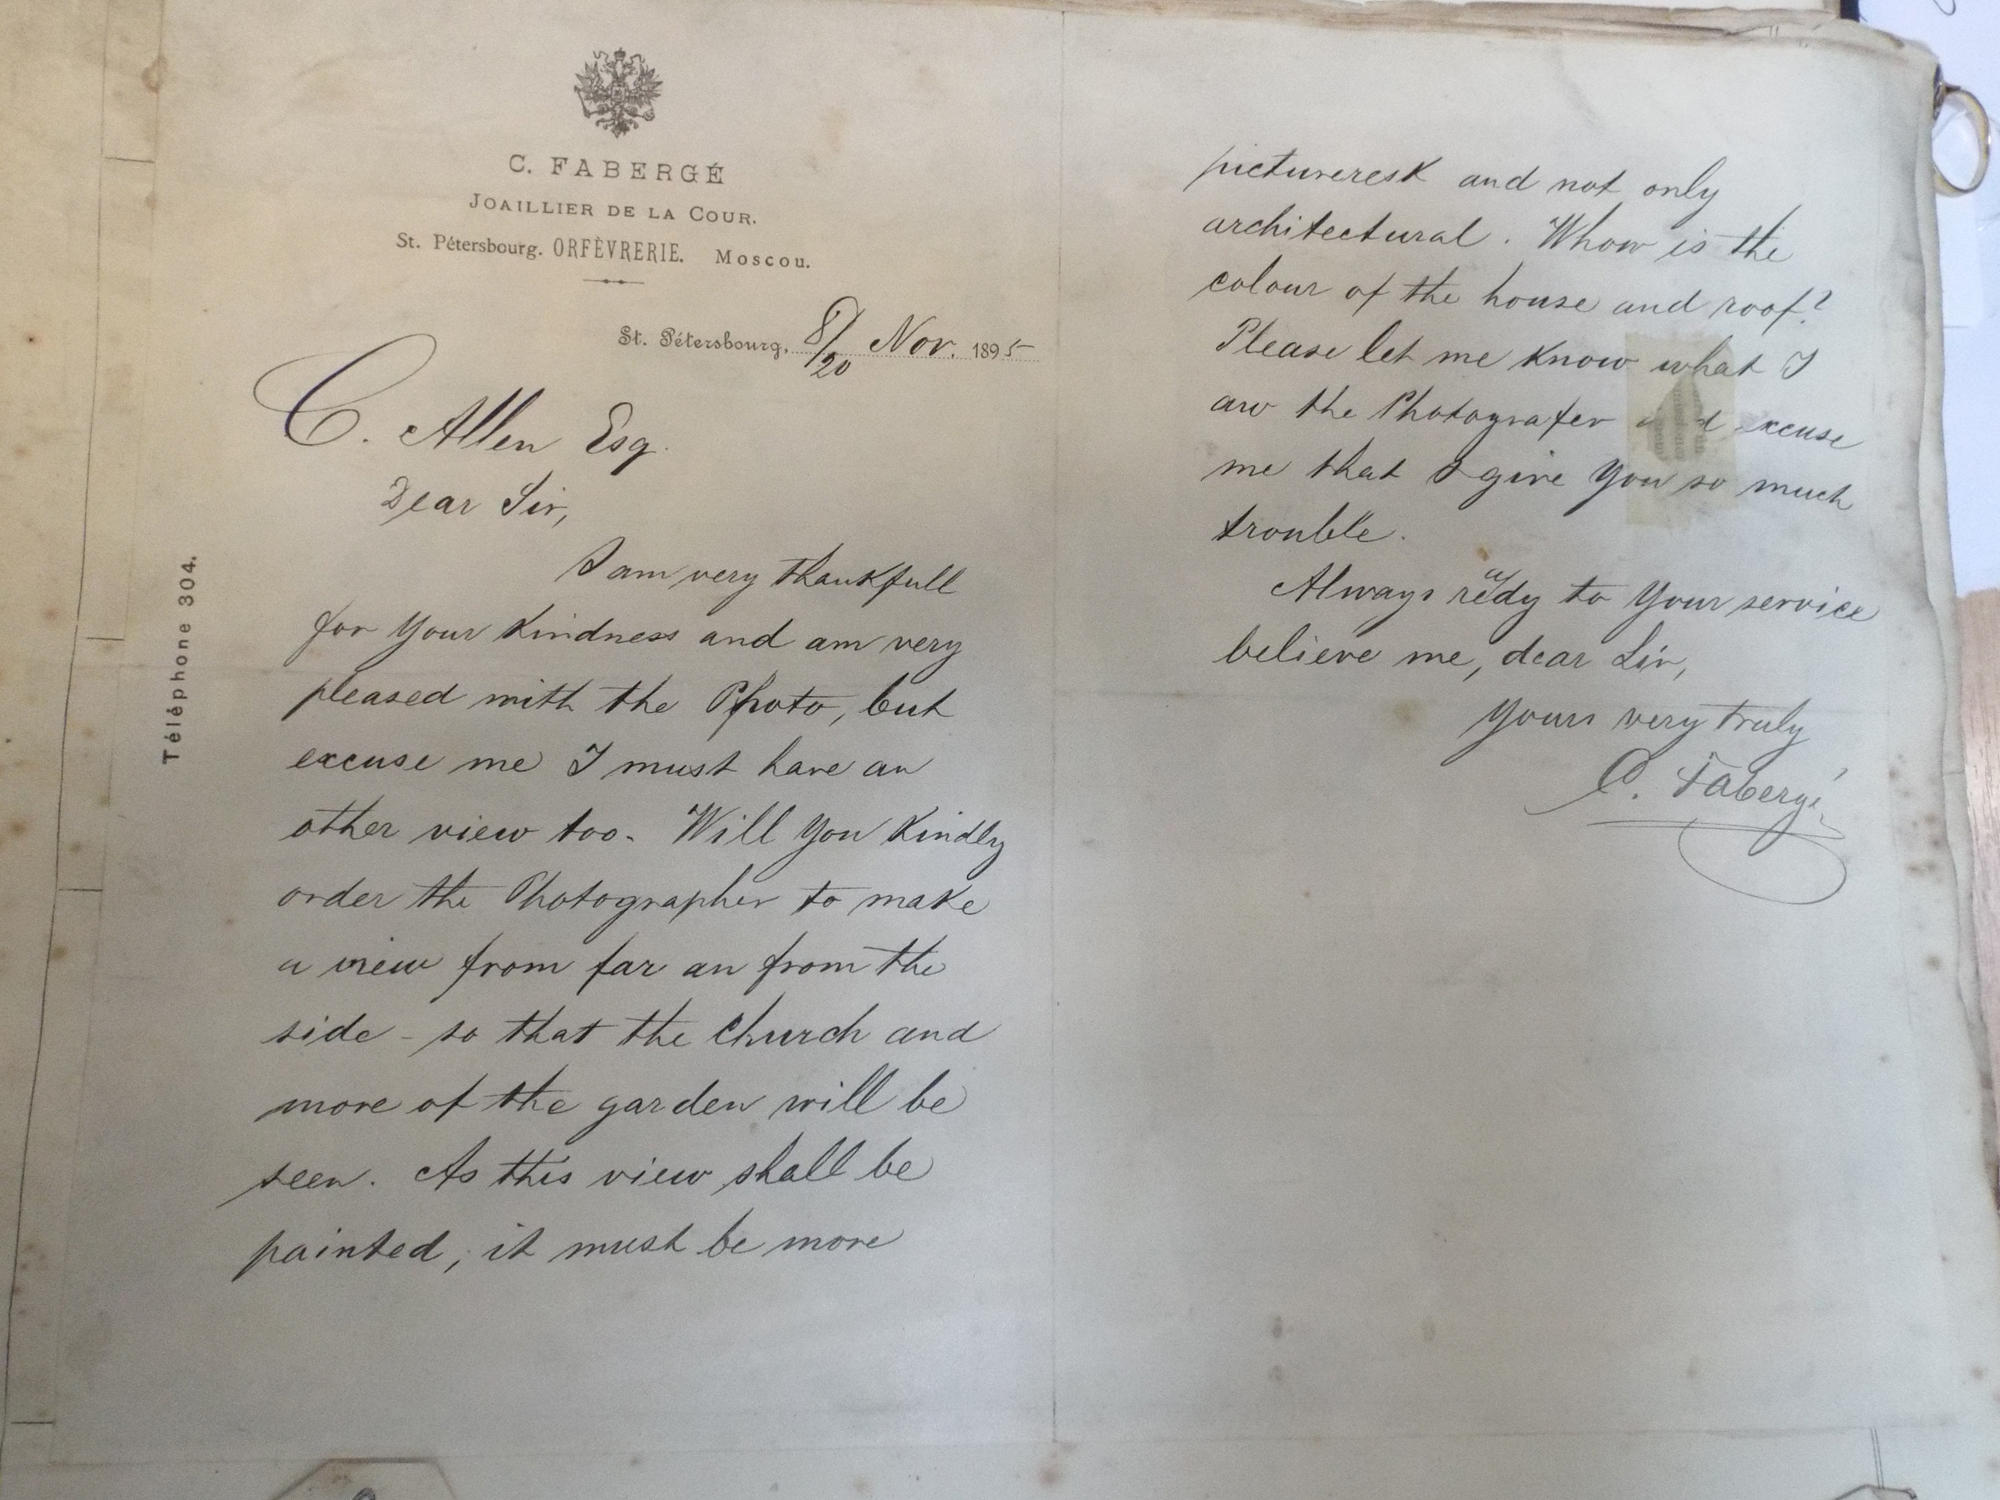 C. FABERGÉ
JOAILLIER DE LA COUR.
St. Pétersbourg. ORFÈVRERIE. Moscou.
St. Pétersbourg, 8/20 Nov. 1895
C. Allen Esq.
Dear Sir,
I am very thankfull
for Your kindness and am very
pleased with the Photo, but
excuse me I must have an
other view too. Will You kindly
order the Photographer to make
a view from far an from the
side - so that the church and
more of the garden will be
seen. As this view shall be
painted, it must be more
Téléphone 304.
pictureresk and not only
architectural. Whow is the
colour of the house and roof?
Please let me know what I
aw the Photografer and excuse
me that I give You so much
trouble.
Always ready to Your service
believe me, dear Sir,
Yours very truly
C. Fabergé